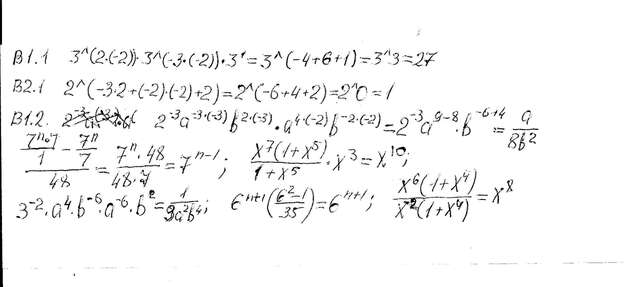 B1.1 3^(2·(-2))·3^(-3·(-2))·3¹=3^(-4+6+1)=3^3=27
B2.1 2^(-3·2+(-2)·(-2)+2)=2^(-6+4+2)=2^0=1
B1.2. 2⁻³a⁻³·⁽⁻³⁾b²·⁽⁻³⁾·a⁴·⁽⁻²⁾b⁻²·⁽⁻²⁾=2⁻³a⁹⁻⁸·b⁻⁶⁺⁴=a/8b²
(7ⁿ·7/1 - 7ⁿ/7)/48=7ⁿ·48/48·7=7ⁿ⁻¹; x⁷(1+x⁵)/1+x⁵·x³=x¹⁰;
3⁻²·a⁴·b⁻⁶·a⁻⁶·b²=1/9a²b⁴; 6ⁿ⁺¹(6²-1/35)=6ⁿ⁺¹; x⁶(1+x⁴)/x⁻²(1+x⁴)=x⁸